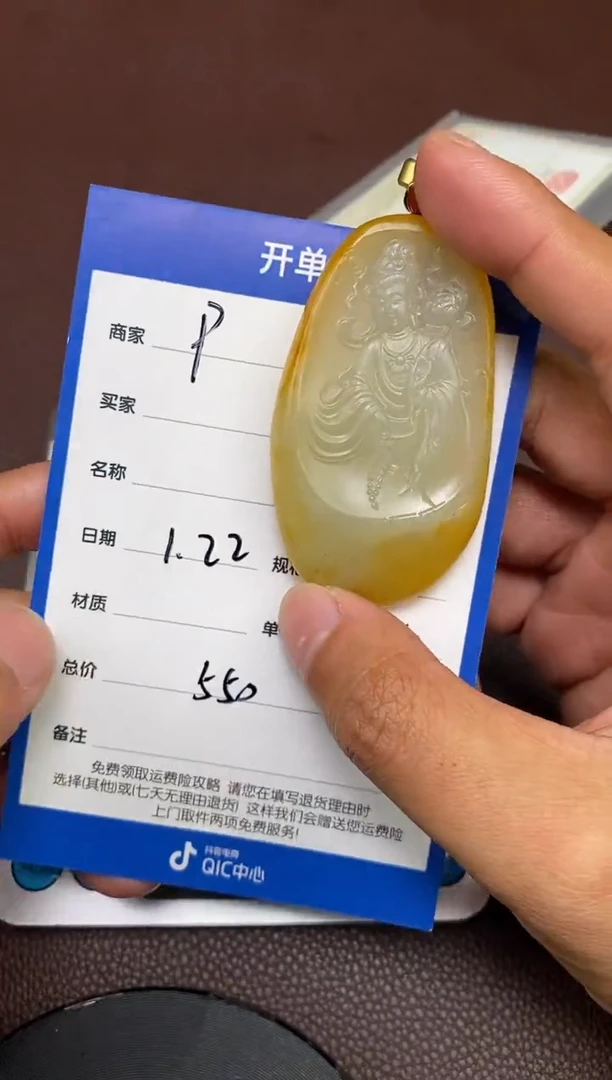 开单
商家 P
买家
名称
日期 1.22 规
材质 单
总价 550
备注
免费领取运费险攻略 请您在填写退货理由时
选择(其他)或(七天无理由退货) 这样我们会赠送您运费险
上门取件两项免费服务!
抖音电商
QIC中心